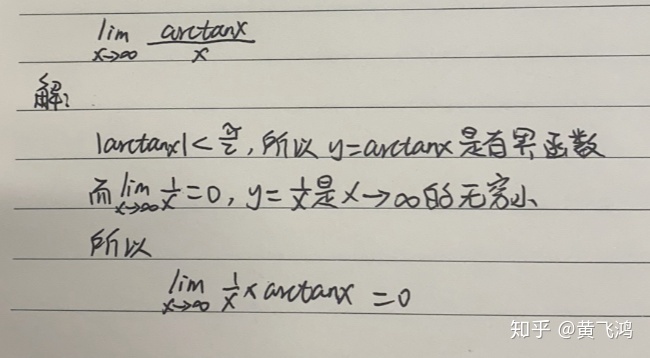 lim x→∞ arctanx / x
解:
|arctanx| < π/2, 所以 y=arctanx 是有界函数
而 lim x→∞ 1/x = 0, y = 1/x 是 x→∞ 的无穷小
所以
lim x→∞ 1/x × arctanx = 0
知乎 @黄飞鸿